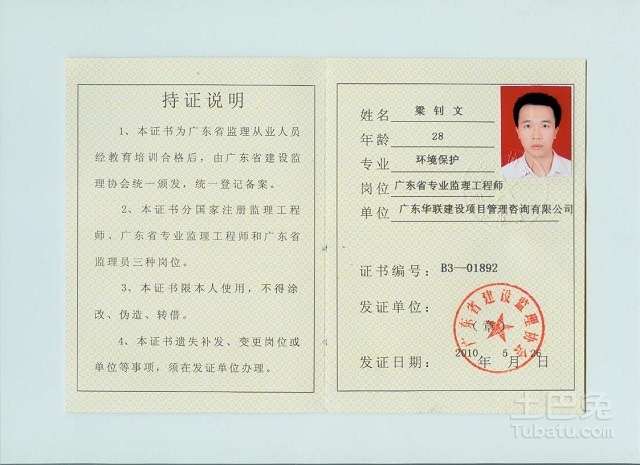 持证说明
1、本证书为广东省监理从业人员
经教育培训合格后，由广东省建设监
理协会统一颁发，统一登记备案。
2、本证书分国家注册监理工程
师、广东省专业监理工程师和广东省
监理员三种岗位。
3、本证书限本人使用，不得涂
改、伪造、转借。
4、本证书遗失补发、变更岗位或
单位等事项，须在发证单位办理。
姓名 梁钊文
年龄 28
专业 环境保护
岗位 广东省专业监理工程师
单位 广东华联建设项目管理咨询有限公司
证书编号：B3—01892
发证单位：
广东省建设监理协会
（章）
发证日期：2010年5月26日
土巴兔
Tubatu.com